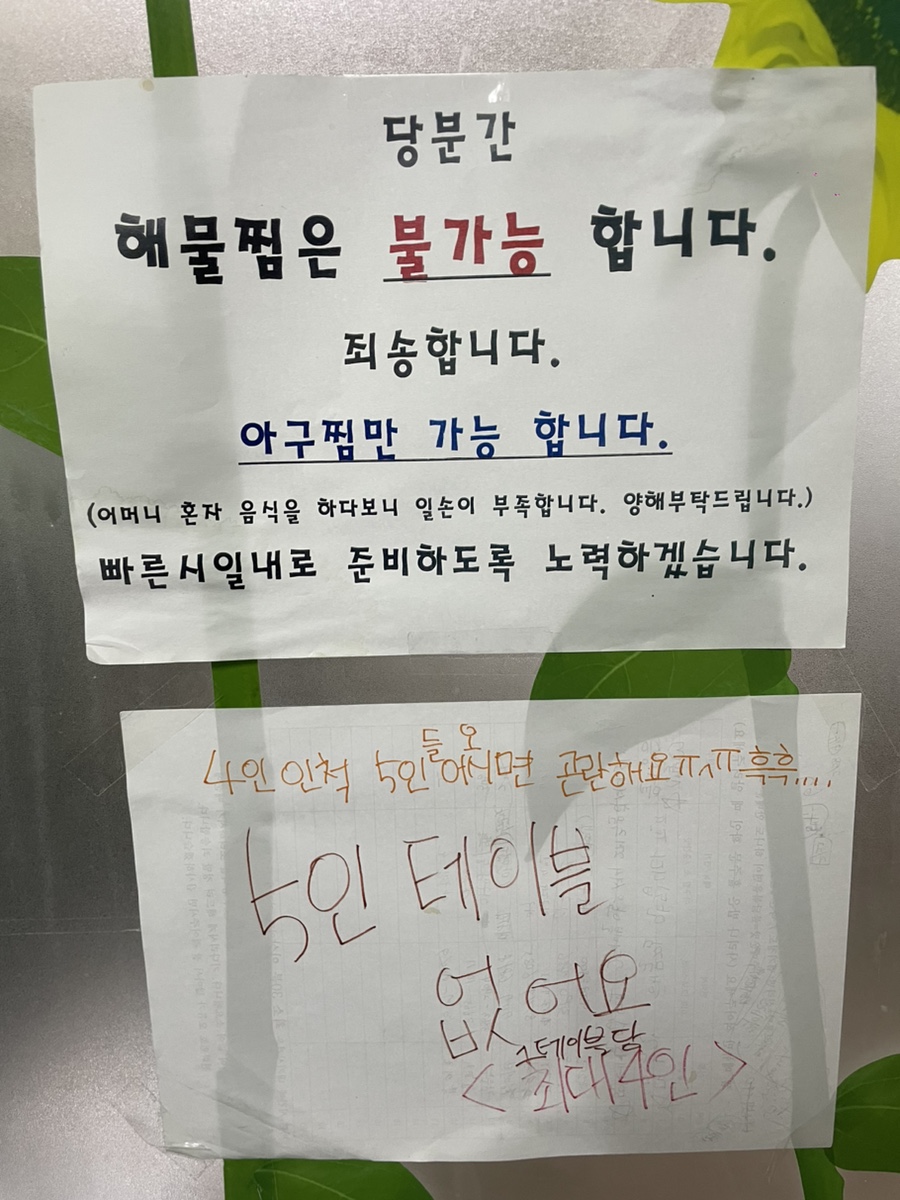 당분간
해물찜은 불가능 합니다.
죄송합니다.
아구찜만 가능 합니다.
(어머니 혼자 음식을 하다보니 일손이 부족합니다. 양해부탁드립니다.)
빠른시일내로 준비하도록 노력하겠습니다.
4인인척 5인 들어오시면 곤란해요ㅠㅅㅠ흑흑....
5인 테이블
없어요
1테이블당
<최대4인>